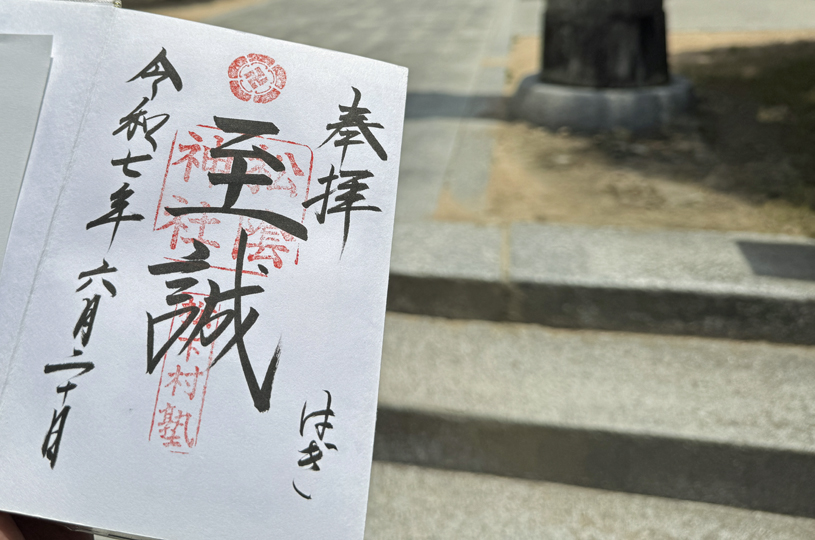 奉拝
はぎ
至誠
松陰
神社
松下村塾
令和七年
六月二十日